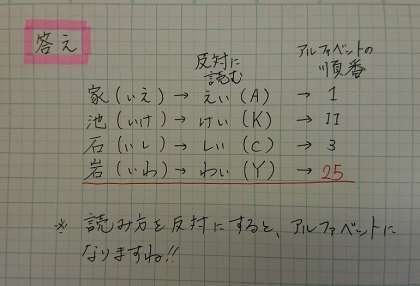 答え
反対に
読む
アルファベットの
順番
家(いえ)→ えい(A) → 1
池(いけ)→ けい(K) → 11
石(いし)→ しい(C) → 3
岩(いわ)→ わい(Y) → 25
※ 読み方を反対にすると、アルファベットに
なりますね!!